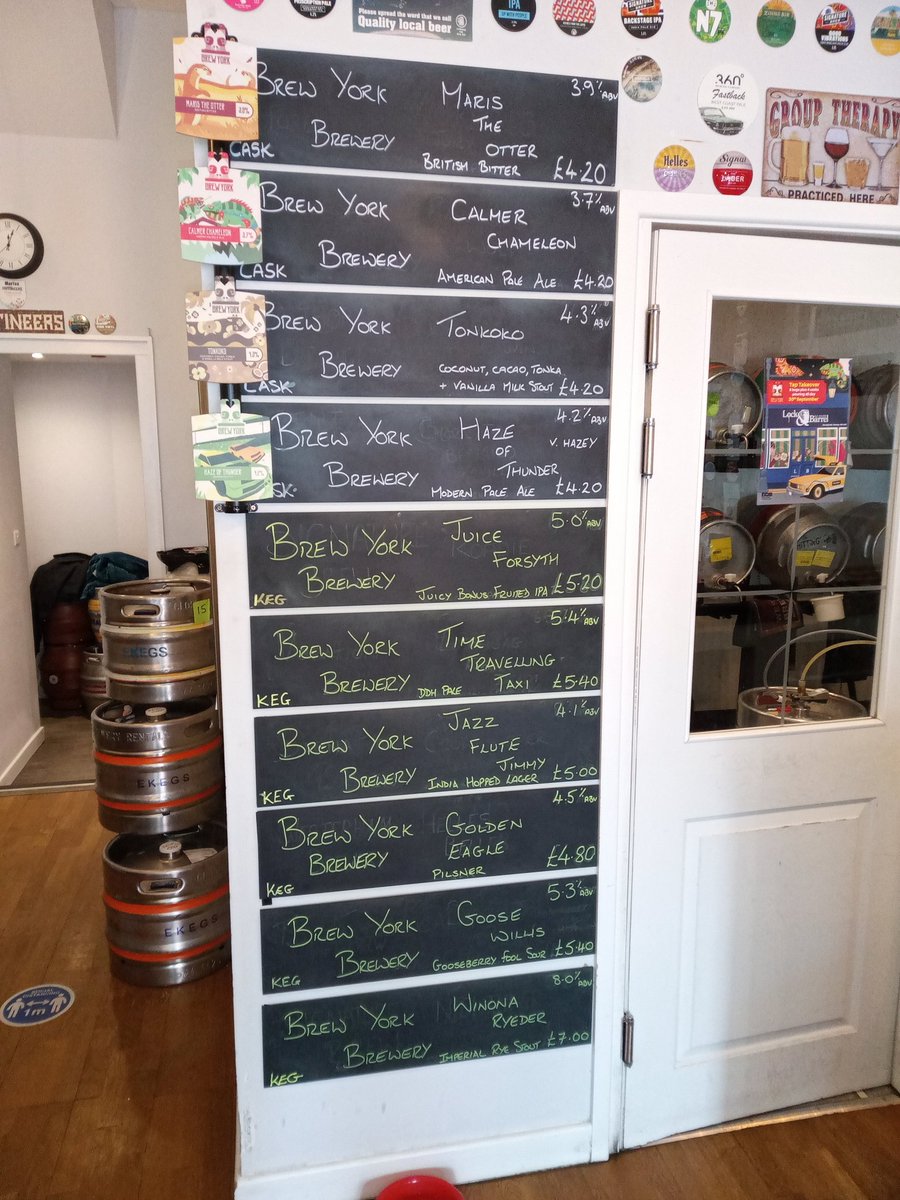 IPA
UP WITH PEOPLE
Please spread the word that we sell
Quality local beer
BACKSTAGE IPA
N7
GOOD
VIBRATIONS
360°
Fastback
WEST COAST PALE
Helles
Signal
GROUP THERAPY
PRACTICED HERE
BREW YORK
MARIS THE OTTER
3.9%
BREW YORK MARIS 3.9% ABV
THE
BREWERY OTTER
CASK BRITISH BITTER £4.20
BREW YORK
CALMER CHAMELEON
3.7%
BREW YORK CALMER 3.7% ABV
CHAMELEON
BREWERY
CASK AMERICAN PALE ALE £4.20
BREW YORK
TONKOKO
BREW YORK TONKOKO 4.3% ABV
BREWERY COCONUT, CACAO, TONKA
CASK + VANILLA MILK STOUT £4.20
BREW YORK
HAZE OF THUNDER
BREW YORK HAZE 4.2% ABV
OF V. HAZEY
BREWERY THUNDER
CASK MODERN PALE ALE £4.20
BREW YORK JUICE 5.0% ABV
FORSYTH
BREWERY
KEG JUICY BONUS FRUITED IPA £5.20
BREW YORK TIME 5.4% ABV
TRAVELLING
KEG BREWERY DDH PALE TAXI £5.40
BREW YORK JAZZ 4.1% ABV
FLUTE
JIMMY
KEG BREWERY INDIA HOPPED LAGER £5.00
BREW YORK GOLDEN 4.5% ABV
BREWERY EAGLE
KEG PILSNER £4.80
BREW YORK GOOSE 5.3% ABV
WILLIS
KEG BREWERY GOOSEBERRY FOOL SOUR £5.40
BREW YORK WINONA 8.0% ABV
RYEDER
KEG BREWERY IMPERIAL RYE STOUT £7.00
Tap Takeover
30th September
Lock & Barrel
INEERS
15
EKEGS
EKEGS
EKEGS
SOCIAL DISTANCING
1m